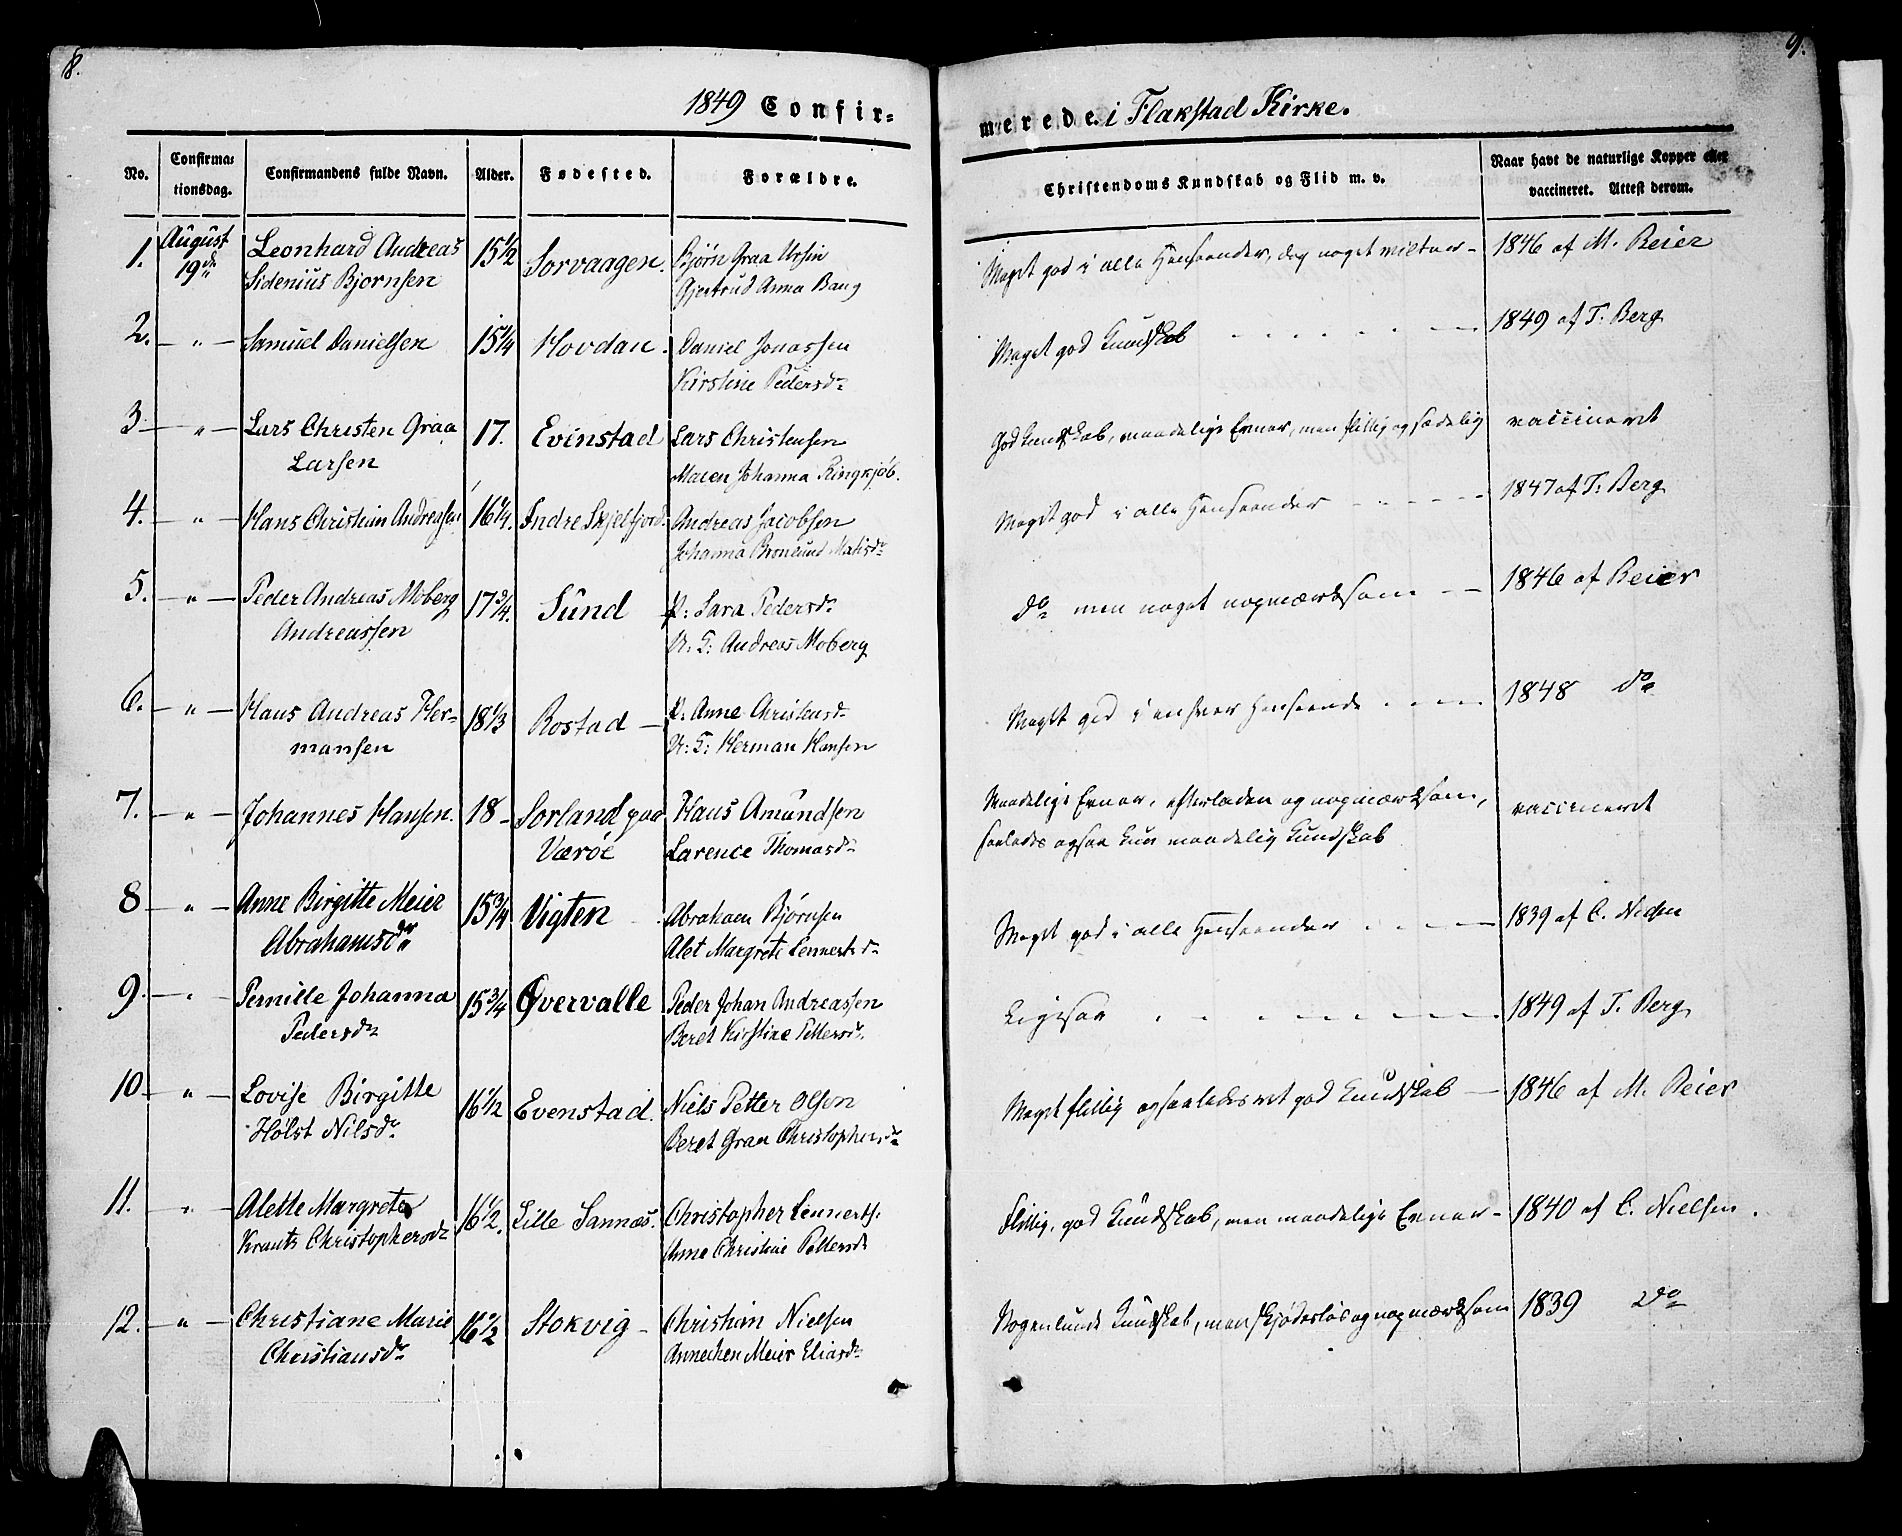 8.
9.
1849 Confir=
merede i Flakstad Kirke.
No.
Confirma=
tionsdag.
Confirmandens fulde Navn.
Alder.
Fødested.
Forældre.
Christendoms Kundskab og Flid m. v.
Naar havt de naturlige Kopper eller
vaccineret. Attest derom.
1. August 19de Leonhard Andreas 15 1/2 Sorvaagen. Bjørn Graa Ursin
Sidenius Bjornsen Gjertrud Anna Bang
Meget god i alle Henseender, dog noget 1846 af M. Beier
2. — " — Samuel Danielsen 15 1/4 Hovdan. Daniel Jonassen
Kirstine Pedersdr
Meget god Kundskab 1849 af T. Berg
3. — " — Lars Christen Graa 17. Evinstad Lars Christensen
Larsen Maren Johanna Ringkjøb.
God Kundskab, maadelige Evner, men flittig og sædelig vaccineret
4. — " — Hans Christian Andreasen 16 1/4. Indre Skjelfjord. Andreas Jacobsen
Johanna Bronlund Matisdr
Meget god i alle Henseender 1847 af T. Berg
5. — " — Peder Andreas Moberg 17 3/4. Sund P: Sara Pedersdr
Andreassen U. F: Andreas Moberg
do men noget uopmærksom 1846 af Beier
6. — " — Hans Andreas Her- 18 1/3 Rostad — P: Anne Christensd.
mansen U: F: Herman Hansen
Meget god i enhver Henseende 1848 do
7. — " — Johannes Hansen. 18 — Sorland paa Hans Amundsen
Værøe Larence Thomasdr
Maadelige Evner, efterladen og uopmærksom, vaccineret
saaledes ogsaa kun maadelig Kundskab
8 — " — Anne Birgitte Meier 15 3/4 Vigten Abraham Bjørnsen
Abrahamsdr Alet Margrete Lennertsdr
Meget god i alle Henseender 1839 af C. Nielsen
9. — " — Pernille Johanna 15 3/4 Øvervalle Peder Johan Andreassen
Pedersdr Beret Kirstine Pettersdr.
Ligesaa 1849 af T. Berg
10 — " — Lovise Birgitte 16 1/2 Evenstad. Niels Petter Olsen
Holst Nilsdr. Beret Graa Christophersdr
Meget flittig og saaledes ret god Kundskab — 1846 af M. Beier
11. " — Alette Margrete 16 1/2. Lille Sannes. Christopher Lennerts.
Krantz Christophersdr Anne Christine Pettersdr
Flittig, god Kundskab, men maadelige Evner — 1840 af C. Nielsen.
12. — " — Christiane Marie 16 1/2 Stokvig — Christian Nielsen
Christiansdr Annechen Meier Eliasdr
Nogenlunde Kundskab, men skjødesløs og uopmærksom 1839 do